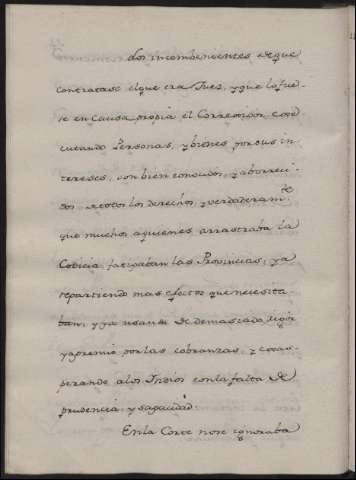 dos incombenientes de que
contratase el que era Juez, y que lo fue-
se en Causa propia el Corregidor, exe-
cutando Personas, y bienes por sus in-
tereses, son bien conocidos, y aborreci-
dos de todos los derechos, y verdaderam.te
que muchos aquienes arrastraba la
Codicia, fatigaban las Provincias, ya
repartiendo mas efectos que necesita-
ban, y ya usando de demasiado rigor
y apremio por las cobranzas, y exas-
perando a los Indios con la falta de
prudencia, y sagacidad.
En la Corte no se ignoraba